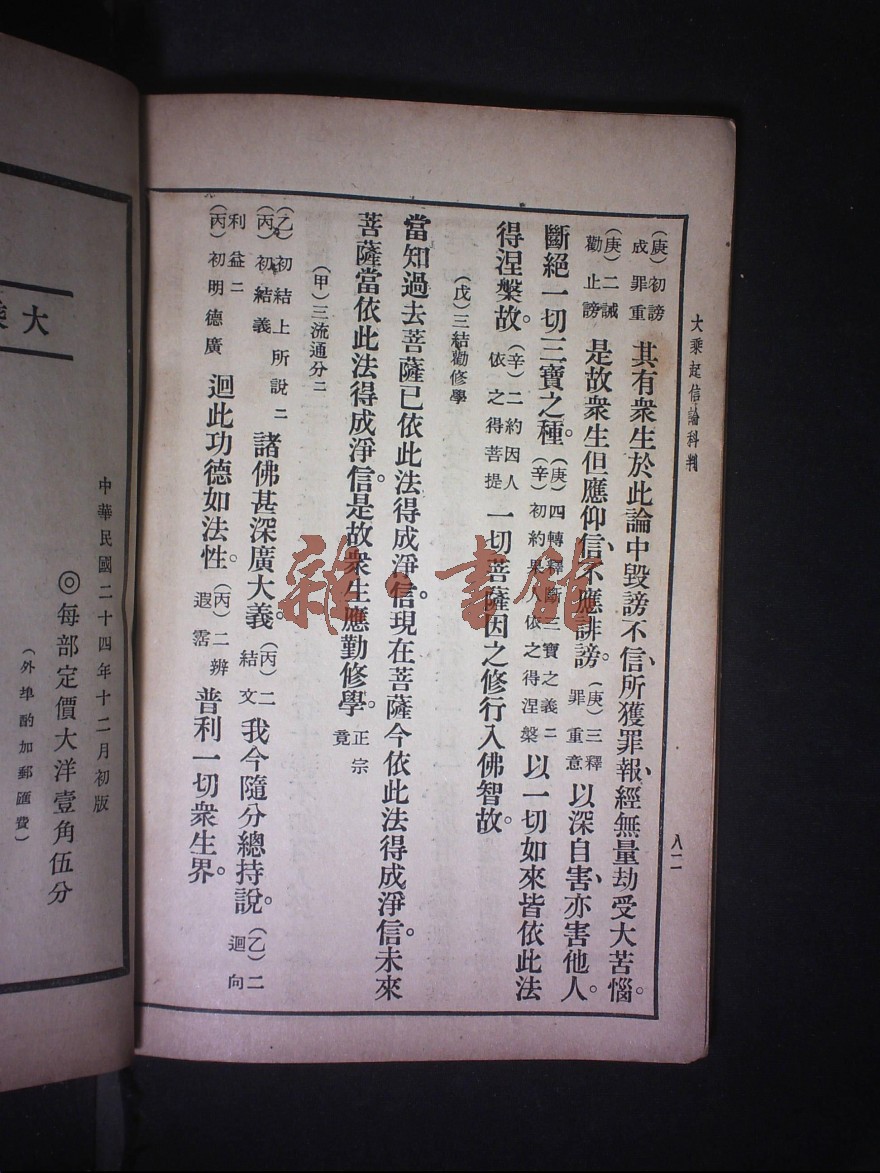 大乘起信論科判
八二
(庚)初謗
成罪重
其有衆生於此論中毀謗不信、所獲罪報、經無量劫受大苦惱。
(庚)二誡
勸止謗
是故衆生但應仰信、不應誹謗。
(庚)三釋
罪重意
以深自害、亦害他人。
斷絕一切三寶之種。
(庚)四轉釋斷三寶之義二
(辛)初約果人依之得涅槃
以一切如來皆依此法
得涅槃故。
(辛)二約因人
依之得菩提
一切菩薩因之修行入佛智故。
(戊)三結勸修學
當知過去菩薩已依此法得成淨信。現在菩薩今依此法得成淨信。未來
菩薩當依此法得成淨信。是故衆生應勤修學。
正宗
竟
(甲)三流通分二
(乙)初結上所說二
(丙)初結義
諸佛甚深廣大義。
(丙)二
結文
我今隨分總持說。
(乙)二
迴向
利益二
(丙)初明德廣
迴此功德如法性。
(丙)二辨
遐霑
普利一切衆生界。
雜·書館
中華民國二十四年十二月初版
◎每部定價大洋壹角伍分
(外埠酌加郵匯費)
大